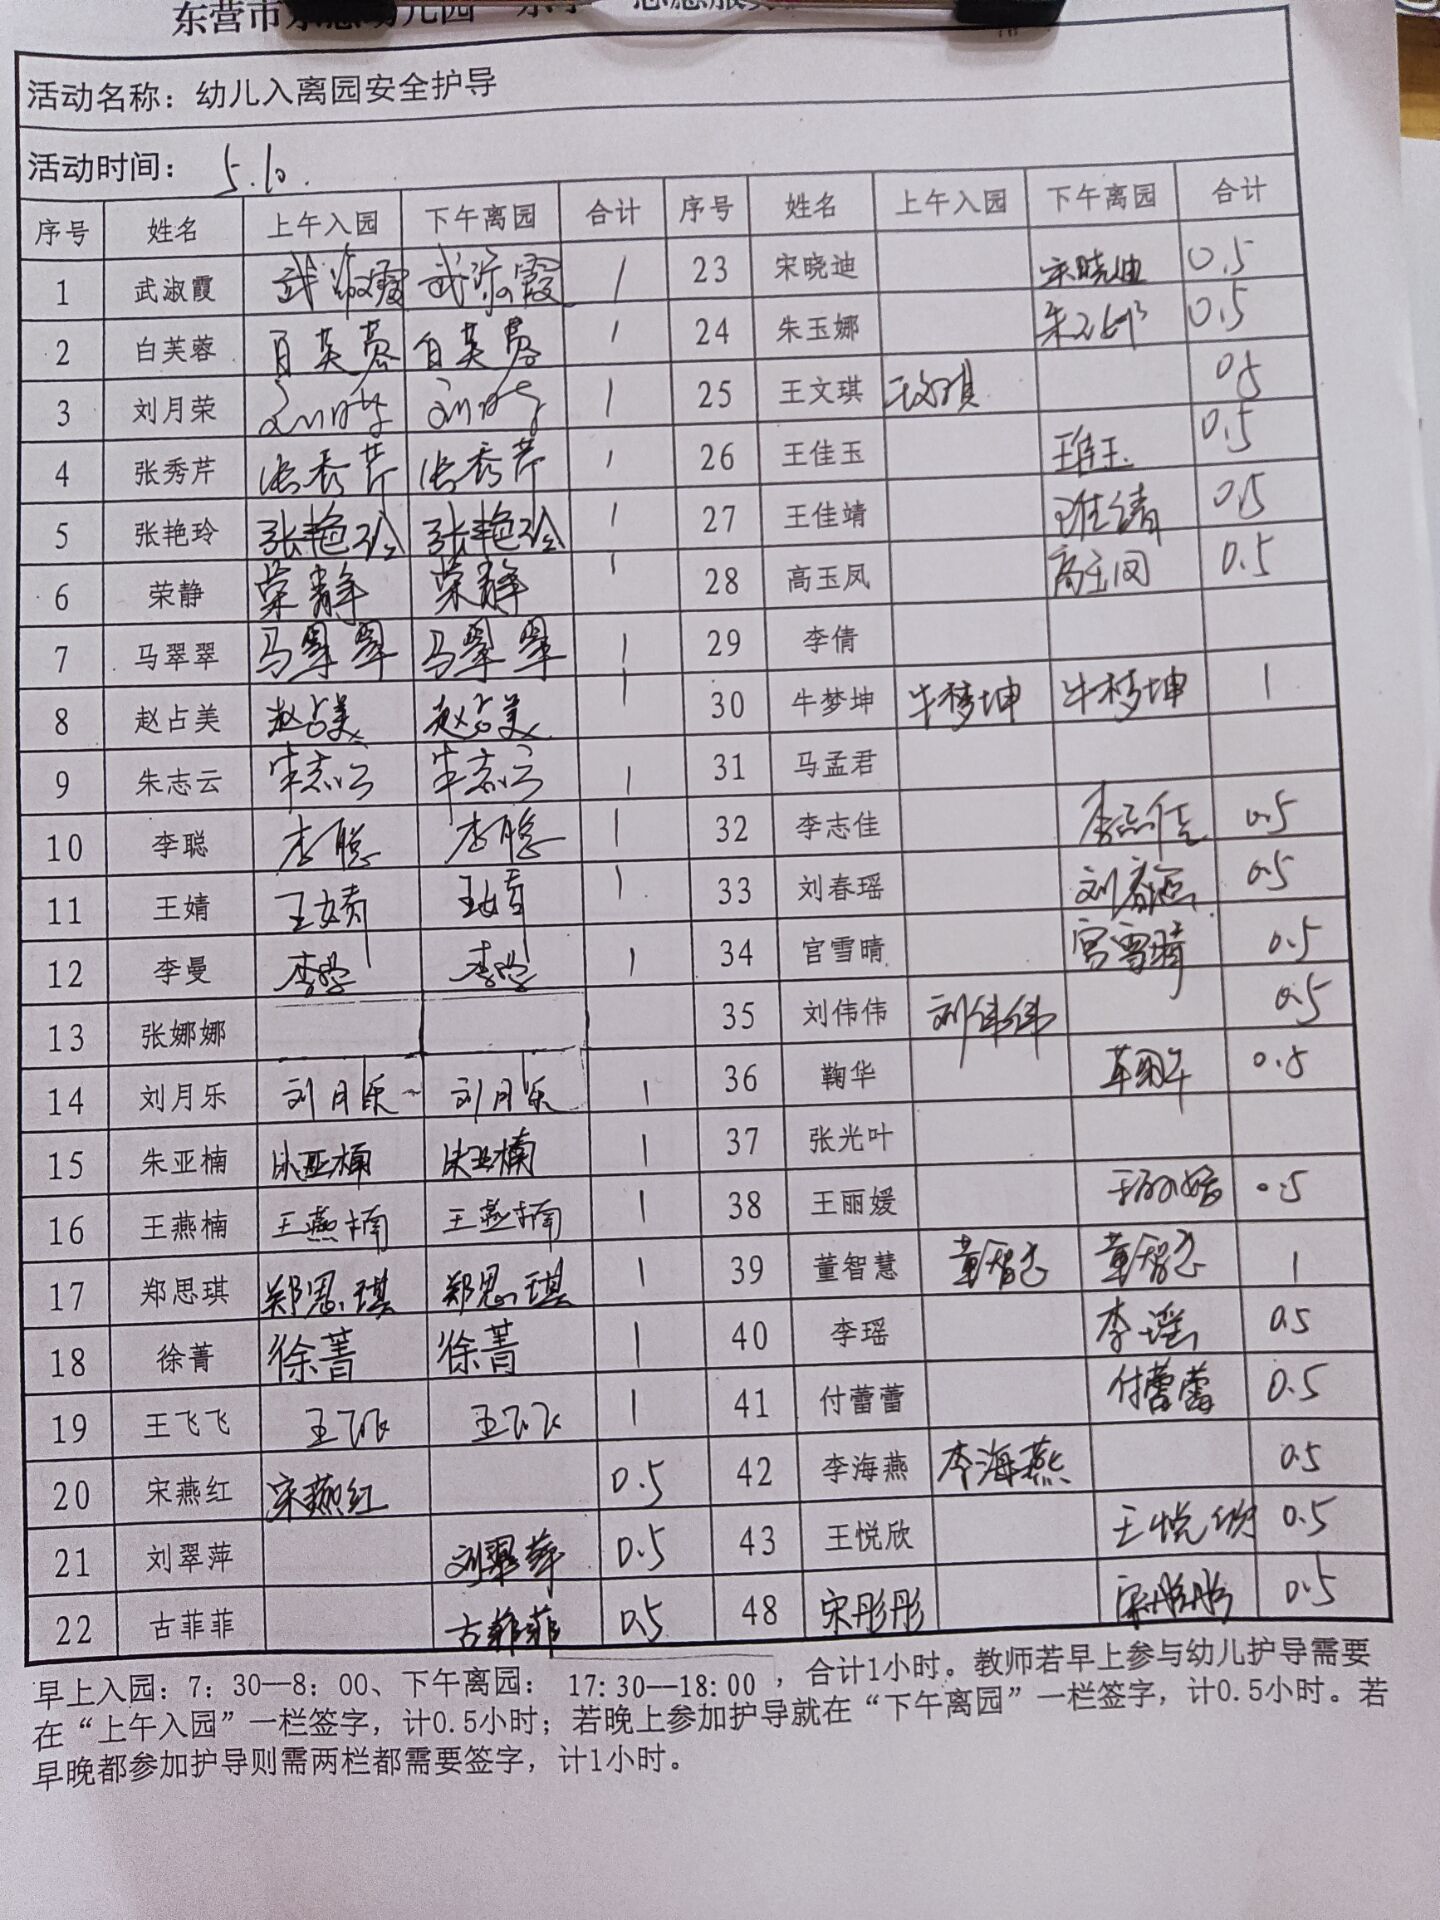 东营市
活动名称：幼儿入离园安全护导
活动时间： 5.10.
序号 姓名 上午入园 下午离园 合计 序号 姓名 上午入园 下午离园 合计
1 武淑霞 武淑霞 武淑霞 1 23 宋晓迪 宋晓迪 0.5
2 白芙蓉 白芙蓉 白芙蓉 1 24 朱玉娜 朱玉娜 0.5
3 刘月荣 刘月荣 刘月荣 1 25 王文琪 王文琪 0.5
4 张秀芹 张秀芹 张秀芹 1 26 王佳玉 王佳玉 0.5
5 张艳玲 张艳玲 张艳玲 1 27 王佳靖 王佳靖 0.5
6 荣静 荣静 荣静 1 28 高玉凤 高玉凤 0.5
7 马翠翠 马翠翠 马翠翠 1 29 李倩
8 赵占美 赵占美 赵占美 1 30 牛梦坤 牛梦坤 牛梦坤 1
9 朱志云 朱志云 朱志云 1 31 马孟君
10 李聪 李聪 李聪 1 32 李志佳 李志佳 0.5
11 王婧 王婧 王婧 1 33 刘春瑶 刘春瑶 0.5
12 李曼 李曼 李曼 1 34 宫雪晴 宫雪晴 0.5
13 张娜娜 35 刘伟伟 刘伟伟 0.5
14 刘月乐 刘月乐 刘月乐 1 36 鞠华 鞠华 0.5
15 朱亚楠 朱亚楠 朱亚楠 1 37 张光叶
16 王燕楠 王燕楠 王燕楠 1 38 王丽媛 王丽媛 0.5
17 郑思琪 郑思琪 郑思琪 1 39 董智慧 董智慧 董智慧 1
18 徐菁 徐菁 徐菁 1 40 李瑶 李瑶 0.5
19 王飞飞 王飞飞 王飞飞 1 41 付蕾蕾 付蕾蕾 0.5
20 宋燕红 宋燕红 0.5 42 李海燕 李海燕 0.5
21 刘翠萍 刘翠萍 0.5 43 王悦欣 王悦欣 0.5
22 古菲菲 古菲菲 0.5 48 宋彤彤 宋彤彤 0.5
早上入园：7：30—8：00、下午离园： 17:30—18:00 ，合计1小时。教师若早上参与幼儿护导需要
在“上午入园”一栏签字，计0.5小时；若晚上参加护导就在“下午离园”一栏签字，计0.5小时。若
早晚都参加护导则需两栏都需要签字，计1小时。